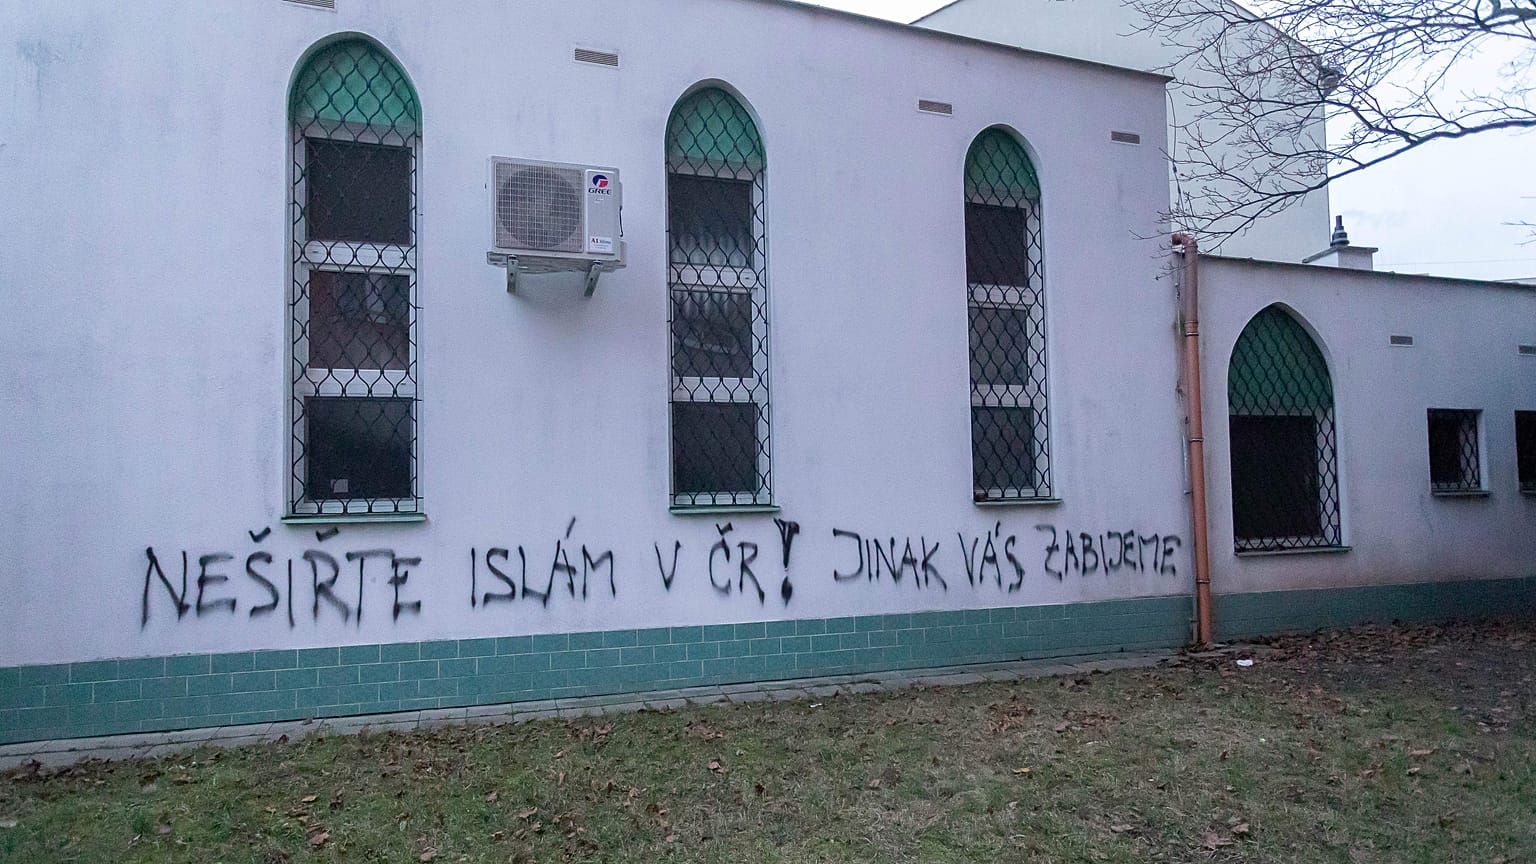 GREE
NEŠIŘTE ISLÁM V ČR! JINAK VÁS ZABIJEME